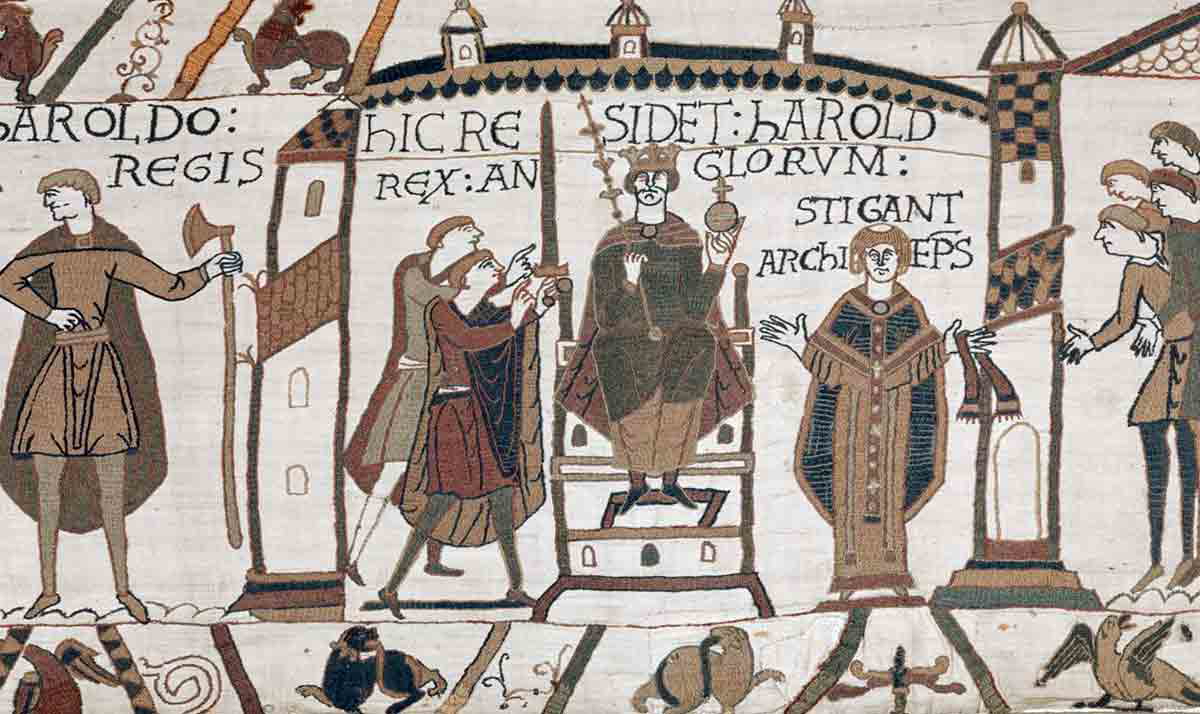 hAROLDO:
REGIS
hIC RE SIDET: hAROLD
REX: AN GLORVM:
STIGANT
ARChI EPS